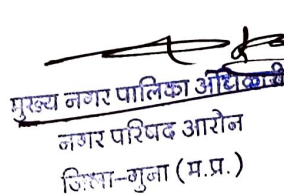 मुख्य नगर पालिका अधिकारी
नगर परिषद आरोन
जिला-गुना (म.प्र.)